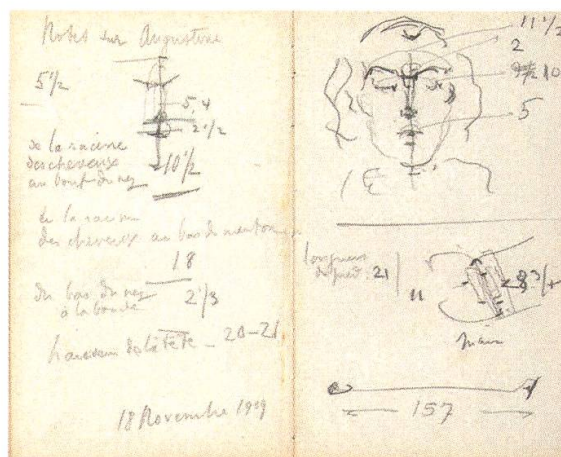 Notes sur Augustine
5 1/2
5,4
2 1/2
de la racine
des cheveux
au bout du nez
10 1/2
de la racine
des cheveux au bas du menton
18
du bas du nez
à la bouche
2 1/3
hauteur de la tête – 20–21
18 Novembre 1909
11 1/2
2
10
5
longueur
de pied. 21
11
8 3/4
main
157